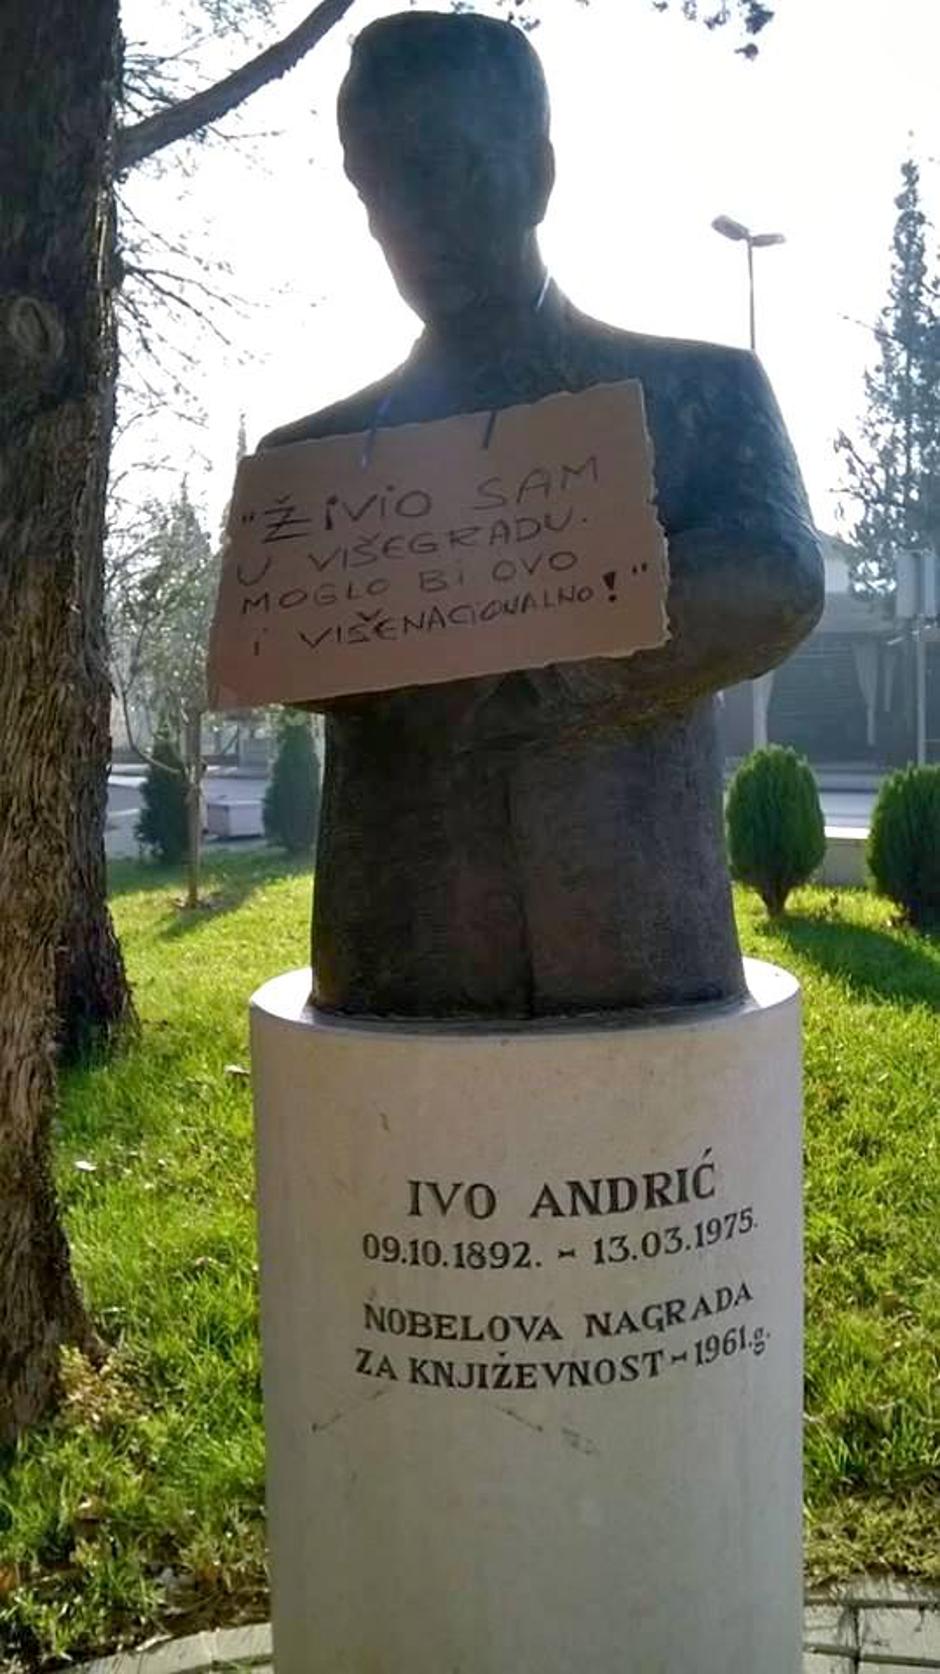 "ŽIVIO SAM
U VIŠEGRADU.
MOGLO BI OVO
I VIŠENACIONALNO!"
IVO ANDRIĆ
09.10.1892. - 13.03.1975.
NOBELOVA NAGRADA
ZA KNJIŽEVNOST - 1961.g.